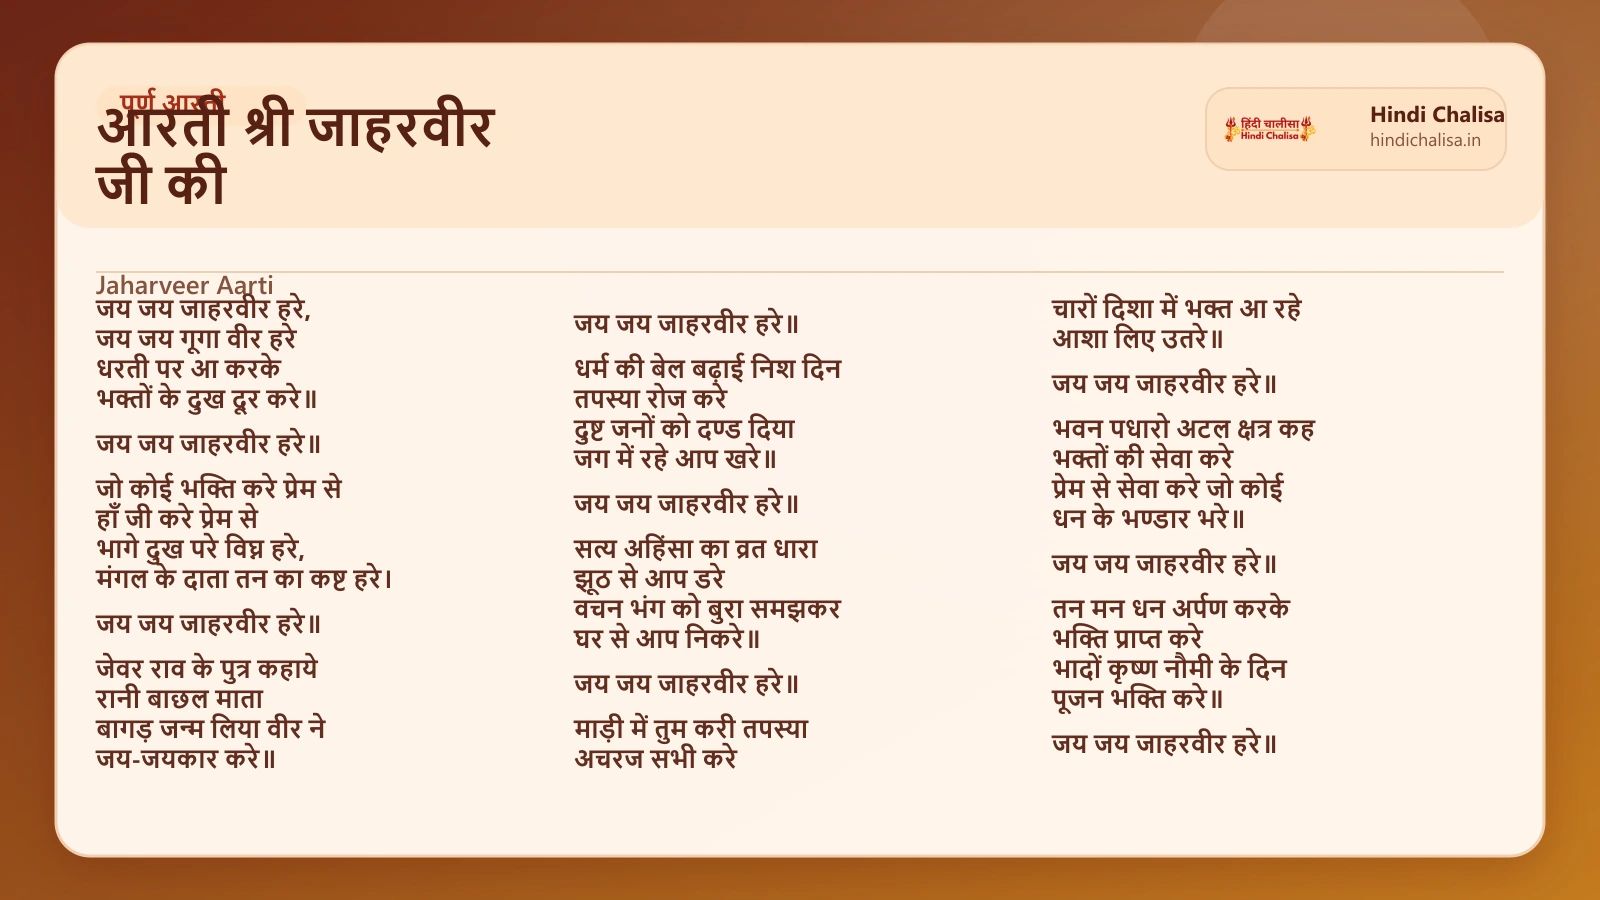 पूर्ण आरती
आरती श्री जाहरवीर
जी की
हिंदी चालीसा
Hindi Chalisa
Hindi Chalisa
hindichalisa.in
Jaharveer Aarti
जय जय जाहरवीर हरे,
जय जय गूगा वीर हरे
धरती पर आ करके
भक्तों के दुख दूर करे॥
जय जय जाहरवीर हरे॥
जो कोई भक्ति करे प्रेम से
हाँ जी करे प्रेम से
भागे दुख परे विघ्न हरे,
मंगल के दाता तन का कष्ट हरे।
जय जय जाहरवीर हरे॥
जेवर राव के पुत्र कहाये
रानी बाछल माता
बागड़ जन्म लिया वीर ने
जय-जयकार करे॥
जय जय जाहरवीर हरे॥
धर्म की बेल बढ़ाई निश दिन
तपस्या रोज करे
दुष्ट जनों को दण्ड दिया
जग में रहे आप खरे॥
जय जय जाहरवीर हरे॥
सत्य अहिंसा का व्रत धारा
झूठ से आप डरे
वचन भंग को बुरा समझकर
घर से आप निकरे॥
जय जय जाहरवीर हरे॥
माड़ी में तुम करी तपस्या
अचरज सभी करे
चारों दिशा में भक्त आ रहे
आशा लिए उतरे॥
जय जय जाहरवीर हरे॥
भवन पधारो अटल क्षत्र कह
भक्तों की सेवा करे
प्रेम से सेवा करे जो कोई
धन के भण्डार भरे॥
जय जय जाहरवीर हरे॥
तन मन धन अर्पण करके
भक्ति प्राप्त करे
भादों कृष्ण नौमी के दिन
पूजन भक्ति करे॥
जय जय जाहरवीर हरे॥